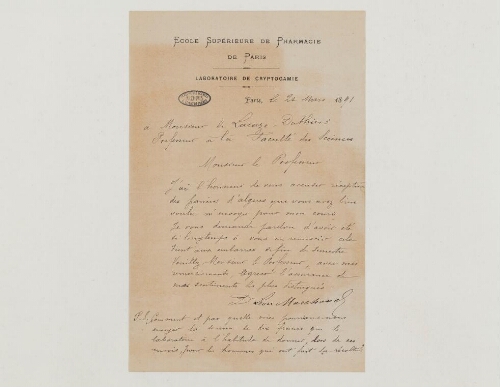 ECOLE SUPÉRIEURE DE PHARMACIE
DE PARIS
LABORATOIRE DE CRYPTOGAMIE
Paris, le 21 Mars 189
a Monsieur de Lacaze-Duthiers
Professeur à la Faculté des Sciences
Monsieur le Professeur
J'ai l'honneur de vous accuser réception
des d'algues que vous avez bien
voulu m' pour mon cours
Je vous demande pardon d'avoir été
si longtemps à vous en remercier
fin de semestre
Veuillez Monsieur le Professeur, avec mes
remerciements agréer l'assurance de
mes sentiments les plus distingués
P.S. Comment et par quelle voie
le dix francs que le
laboratoire a l'habitude de donner, lors de ces
envois pour les hommes qui ont fait la récolte?